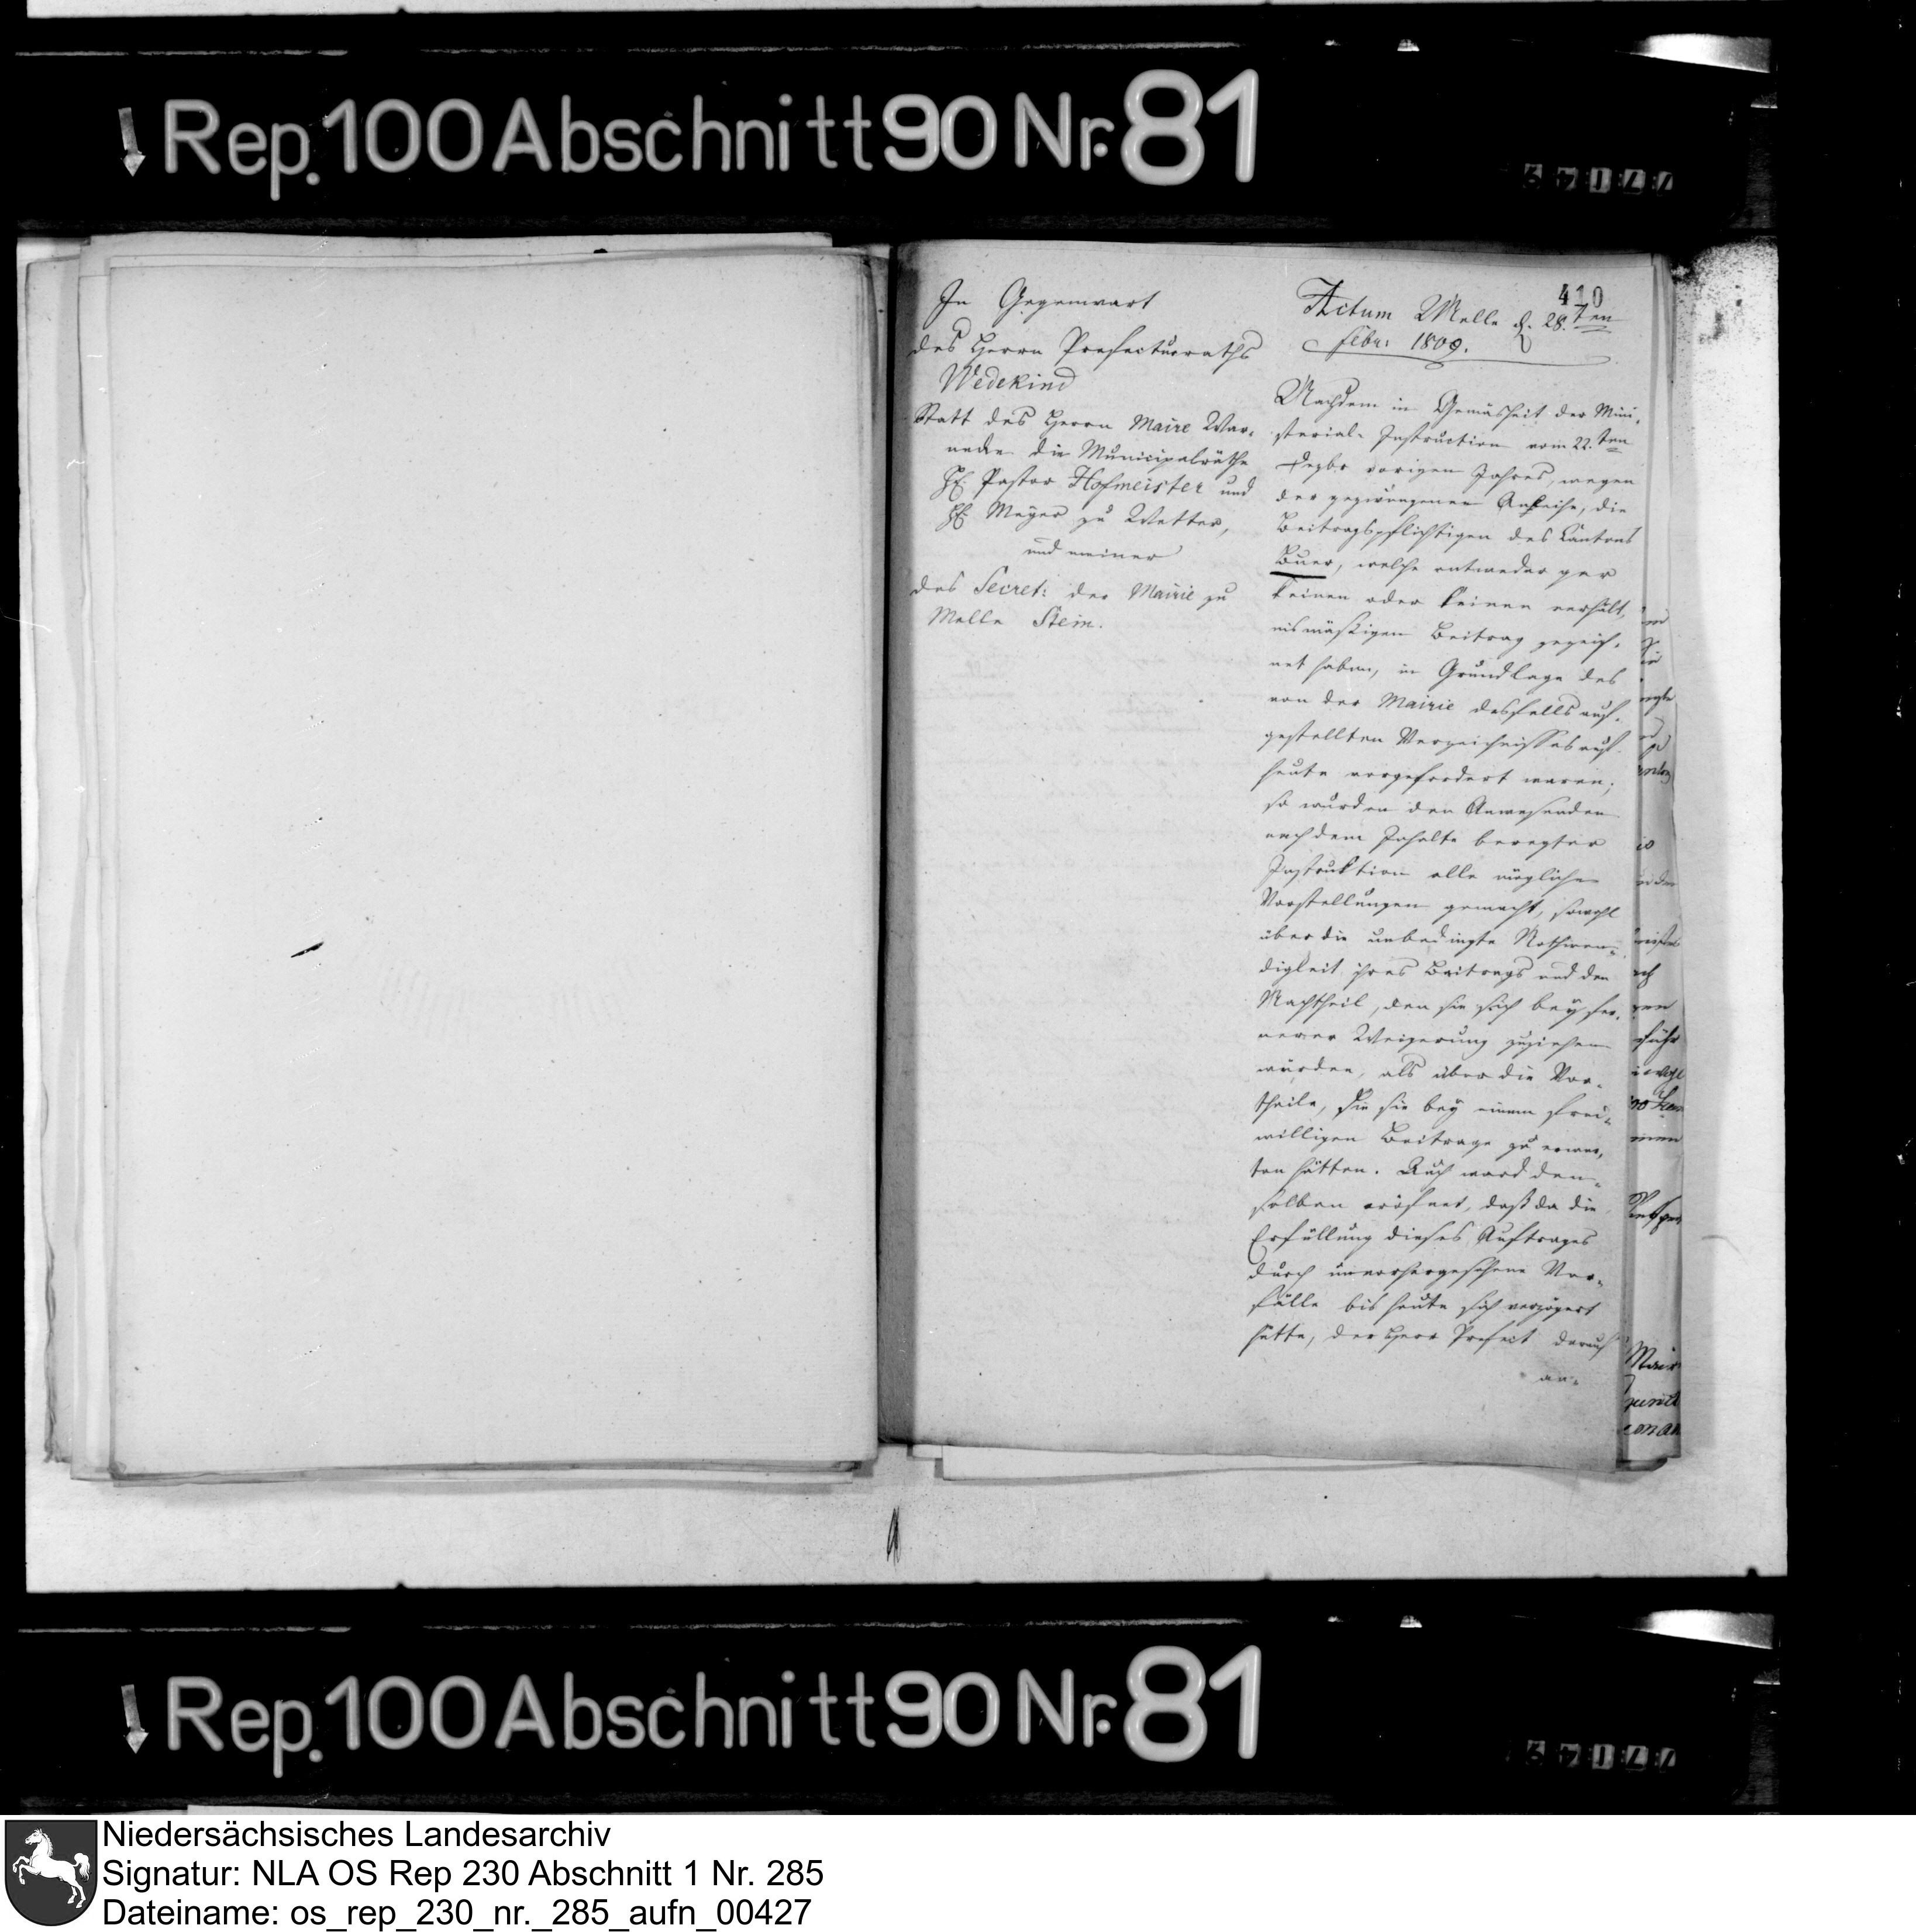 Rep. 100 Abschnitt 90 Nr. 81
In Gegenwart
des Herrn Prefecturraths
Wedekind
Statt des Herrn Maire War-
neke die Municipalräthe
H. Pastor Hofmeister und
H. Meyer zu Wetter,
und meiner
des Secret: der Mairie zu
Melle Stein.
410
Actum Melle d. 28.ten
Febr. 1809.
Nachdem in Gemäsheit der Mini-
sterial-Instruction vom 22.ten
Dezbr vorigen Jahres, wegen
der gezwungenen Anleihe, die
Beitragspflichtigen des Cantons
Buer, welche entweder gar
keinen oder keinen verhält-
nismäßigen Beitrag gezeich-
net haben, in Grundlage des
von der Mairie desfalls auf-
gestellten Verzeichnisses auf
heute vorgefordert waren;
so wurden den Anwesenden
nach dem Inhalte beregter
Instruktion alle mögliche
Vorstellungen gemacht, sowohl
über die unbedingte Nothwen-
digkeit ihres Beitrags und den
Nachtheil, den sie sich bey fer-
nerer Weigerung zuziehen
würden, als über die Vor-
theile, die sie bey einem frei-
willigen Beitrage zu erwar-
ten hätten. Auch ward den-
selben eröfnet, daß da die
Erfüllung dieses Auftrages
durch unvorhergesehene Vor-
fälle bis heute sich verzögert
hätte, der Herr Prefect darauf
an-
Rep. 100 Abschnitt 90 Nr. 81
Niedersächsisches Landesarchiv
Signatur: NLA OS Rep 230 Abschnitt 1 Nr. 285
Dateiname: os_rep_230_nr._285_aufn_00427